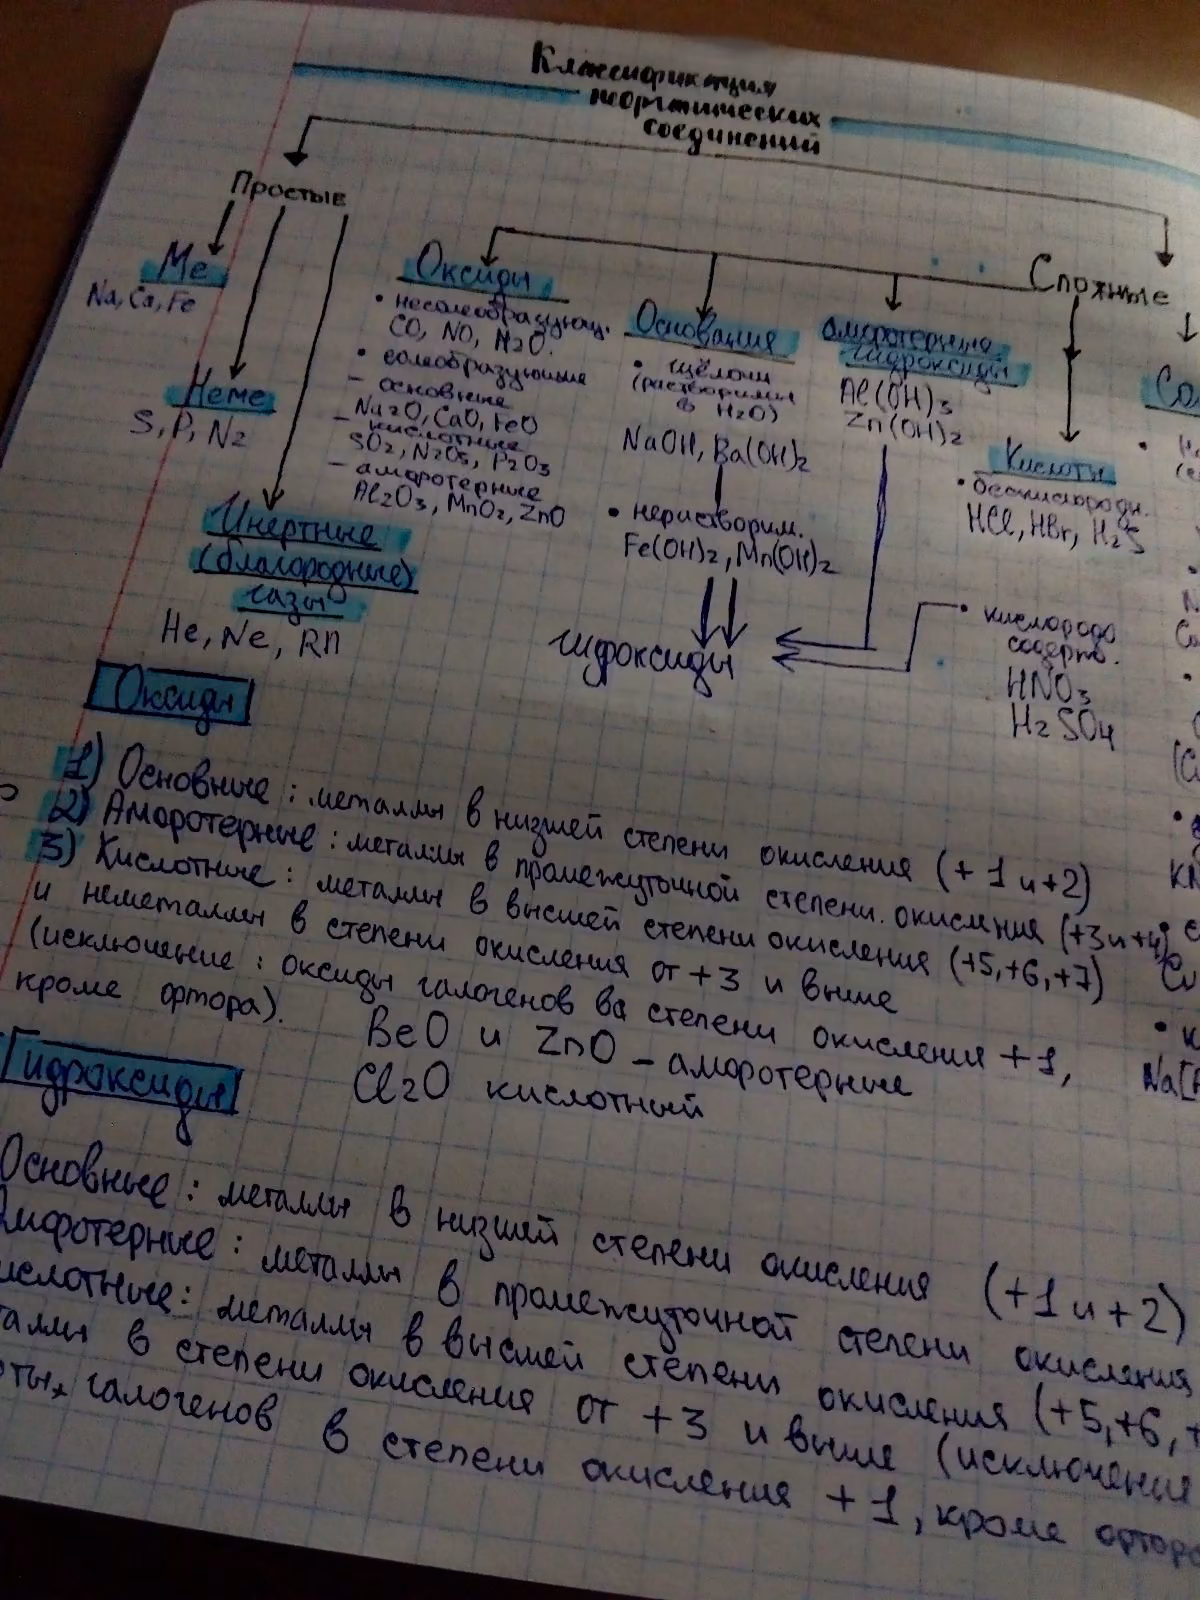 Классификация
неорганических
соединений
Простые
Сложные
Ме
Na, Ca, Fe
Неме
S, P, N2
Инертные
(благородные)
газы
He, Ne, Rn
Оксиды
• несолеобразующ.
CO, NO, N2O.
• солеобразующие
– основные
Na2O, CaO, FeO
– кислотные
SO2, N2O5, P2O3
– амфотерные
Al2O3, MnO2, ZnO
Основания
• щёлочи
(растворимы
в H2O)
NaOH, Ba(OH)2
• нерастворим.
Fe(OH)2, Mn(OH)2
амфотерные
гидроксиды
Al(OH)3
Zn(OH)2
гидроксиды
Кислоты
• бескислородн.
HCl, HBr, H2S
• кислородо
содерж.
HNO3
H2SO4
Со
Оксиды
1) Основные : металлы в низшей степени окисления (+1 и +2)
2) Амфотерные : металлы в промежуточной степени. окисления (+3 и +4)
3) Кислотные : металлы в высшей степени окисления (+5,+6,+7)
и неметаллы в степени окисления от +3 и выше
(исключение : оксиды галогенов ва степени окисления +1,
кроме фтора).
BeO и ZnO – амфотерные
Cl2O кислотный
Гидроксиды
Основные : металлы в низшей степени окисления (+1 и +2)
Амфотерные : металлы в промежуточной степени окисления
ислотные : металлы в высшей степени окисления (+5,+6,+
таллы в степени окисления от +3 и выше (исключение
оты, галогенов в степени окисления +1, кроме фтора